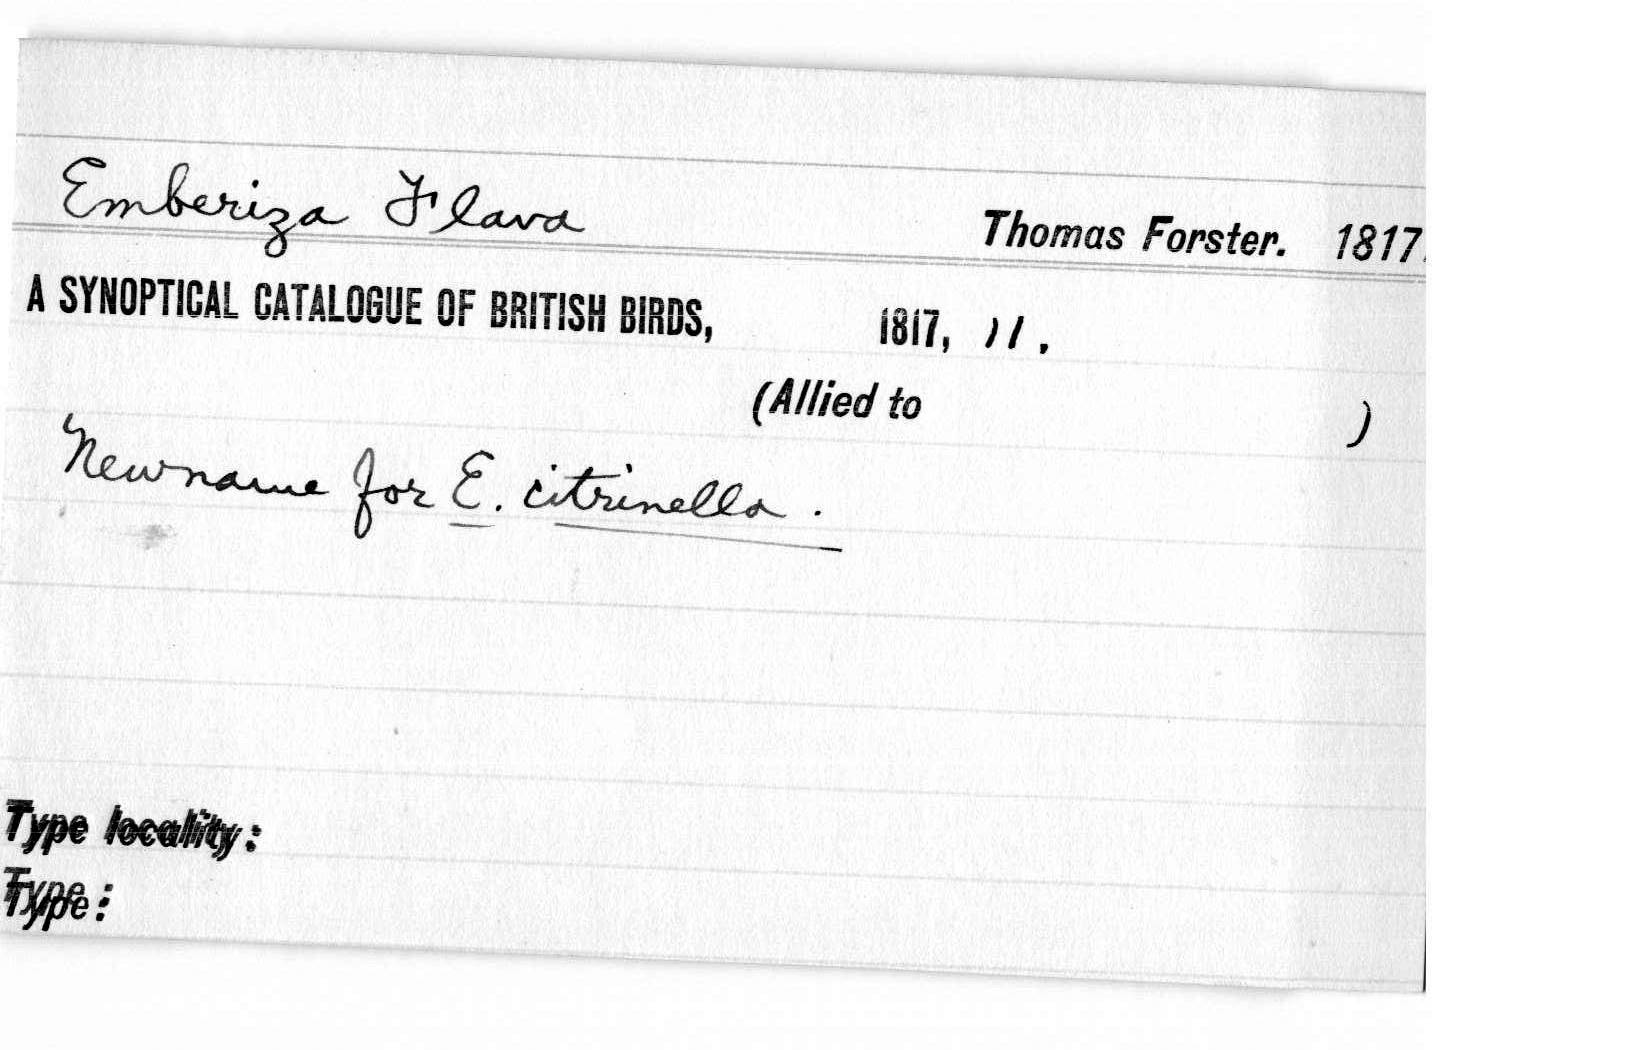 Emberiza Flava Thomas Forster. 1817.
A SYNOPTICAL CATALOGUE OF BRITISH BIRDS, 1817, 11.
(Allied to )
New name for E. citrinella.
Type locality:
Type: